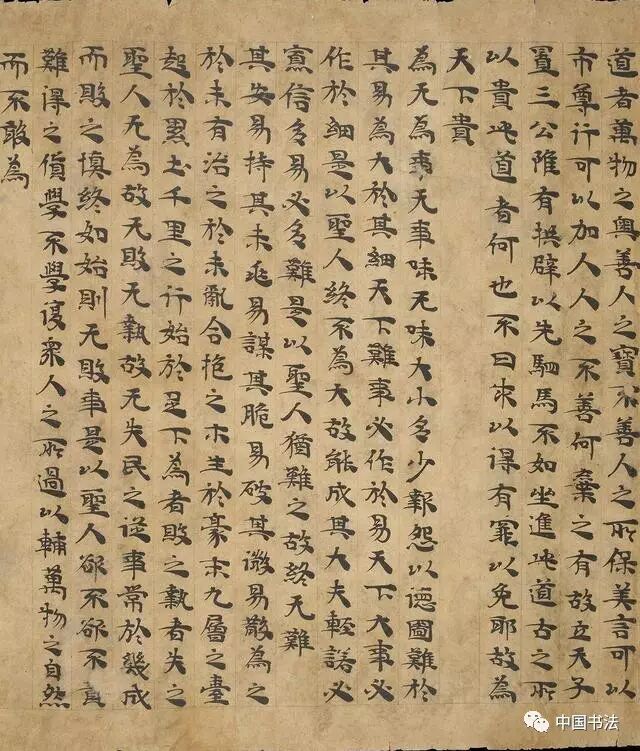 道者萬物之奧善人之寶不善人之所保美言可以
市尊行可以加人人之不善何棄之有故立天子
置三公雖有拱辟以先駟馬不如坐進此道古之所
以貴此道者何也不曰求以得有罪以免耶故為
天下貴
為无為事无事味无味大小多少報怨以德圖難於
其易為大於其細天下難事必作於易天下大事必
作於細是以聖人終不為大故能成其大夫輕諾必
寡信多易必多難是以聖人猶難之故終无難
其安易持其未兆易謀其脆易破其微易散為之
於未有治之於未亂合抱之木生於豪末九層之臺
起於累土千里之行始於足下為者敗之執者失之
聖人无為故无敗无執故无失民之從事常於幾成
而敗之慎終如始則无敗事是以聖人欲不欲不貴
難得之貨學不學復衆人之所過以輔萬物之自然
而不敢為
中国书法